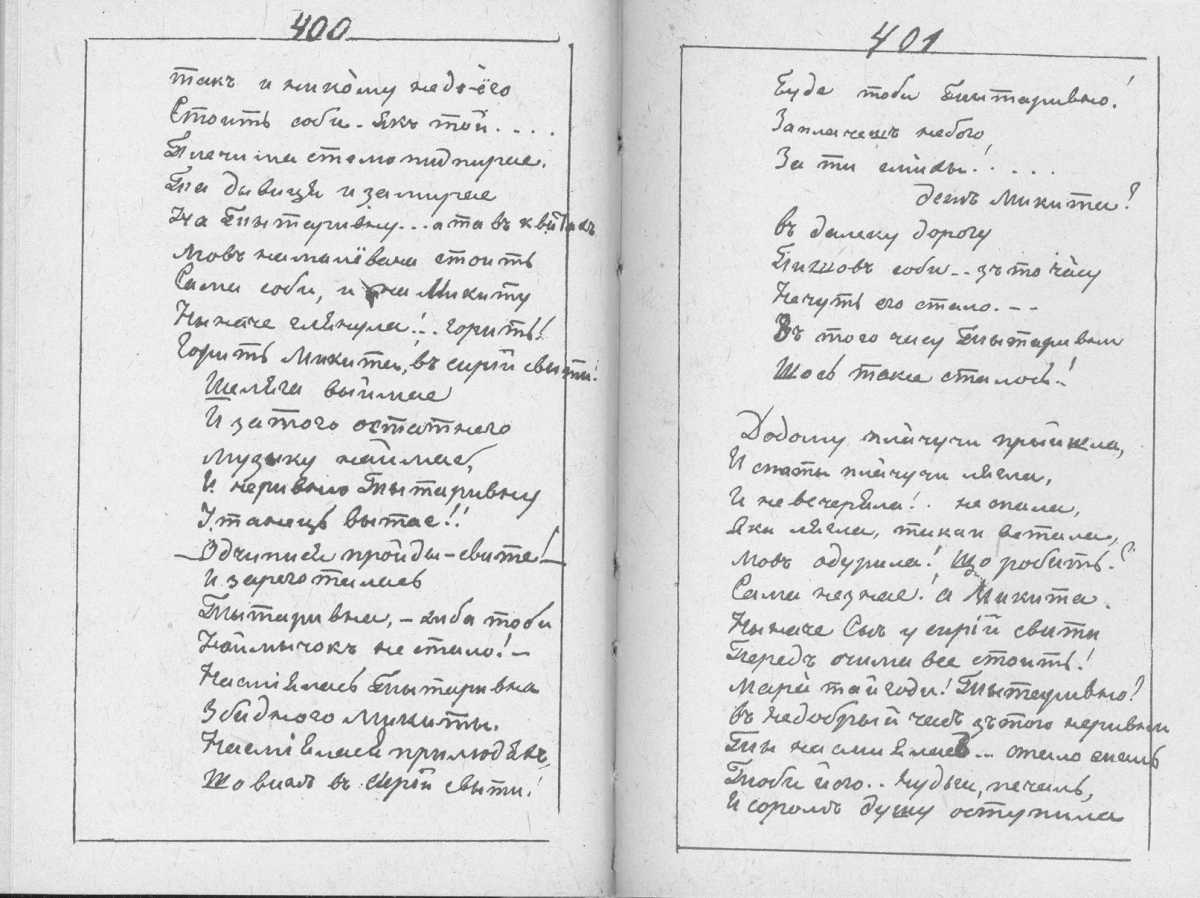 400
такъ и никому надъ-ёго
Стоитъ соби. Якъ той....
Плечима стелю пидпирае.
Та дывиця и замирае
На Тытаривну... а та въ квиткахъ
Мовъ намалёвана стоитъ
Сама соби, и на Микиту
Ныначе глянула!.. горитъ!
Горитъ Микита, въ сирій свыти!
Шеляга выймае
И за того остатнего
Музыку наймае,
И неривню Тытаривну
У танець вытае!!
— Одчипися пройды-свите! —
И зареготилась
Тытаривна, — хиба тоби
Наймычокъ не стало! —
Насміялась Тытаривна
Збидного Микиты.
Насміялася прилюдяхъ,
Що винъ въ сирій свыти!
401
Буде тоби Тытаривно!
Заплачешъ небого
За ти смихы!.....
дежъ Микита?
въ далеку дорогу
Пишовъ соби.. зътого часу
Нечуть его стало.--
Зъ того часу Тытаривни
Щось таке сталось!
Додому плачучи прыйшла,
И спаты плачучи лягла,
И невечеряла!. неспала,
Яка лягла, така и встала,
Мовъ одурила! Що робить.?
Сама незнае! а Микита.
Ныначе Сыч у сирій свыти
Передъ очима все стоитъ!
Мара тай годи! Тытаривно?
въ недобрый часъ зътого неривни
Ты насміялася... стало жаль
Тоби його.. нудьга, печаль,
И соромъ душу оступила